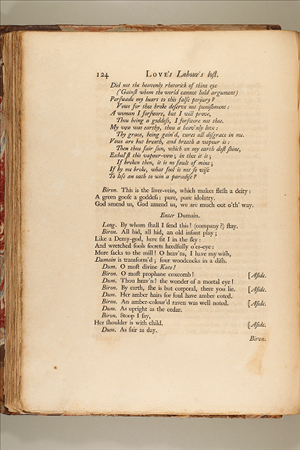 124 LOVE's Labour's lost.
Did not the heavenly rhetorick of thine eye
('Gainst whom the world cannot hold argument)
Perswade my heart to this false perjury?
Vows for thee broke deserve not punishment:
A woman I forswore, but I will prove,
Thou being a goddess, I forswore not thee.
My vow was earthy, thou a heav'nly love:
Thy grace, being gain'd, cures all disgrace in me.
Vows are but breath, and breath a vapour is:
Then thou fair sun, which on my earth dost shine,
Exhal'st this vapour-vow; in thee it is;
If broken then, it is no fault of mine;
If by me broke, what fool is not so wise
To lose an oath to win a paradise?
Biron. This is the liver-vein, which makes flesh a deity:
A green goose a goddess: pure, pure idolatry.
God amend us, God amend us, we are much out o'th' way.
Enter Dumain.
Long. By whom shall I send this? (company?) stay.
Biron. All hid, all hid, an old infant play;
Like a Demy-god, here sit I in the sky:
And wretched fools secrets heedfully o'er-eye:
More sacks to the mill! O heav'ns, I have my wish,
Dumain is transform'd; four woodcocks in a dish.
Dum. O most divine Kate!
Biron. O most prophane coxcomb! [Aside.
Dum. Thou heav'n! the wonder of a mortal eye!
Biron. By earth, she is but corporal, there you lie. [Aside.
Dum. Her amber hairs for foul have amber coted.
Biron. An amber-colour'd raven was well noted. [Aside.
Dum. As upright as the cedar.
Biron. Stoop I say,
Her shoulder is with child. [Aside.
Dum. As fair as day.
Biron.